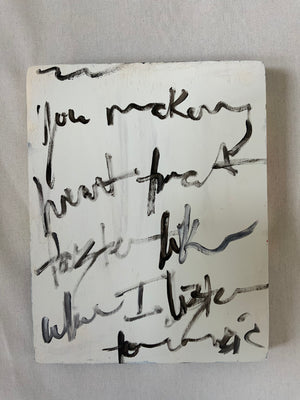 you make my
heart beat
faster like
when I listen
to music